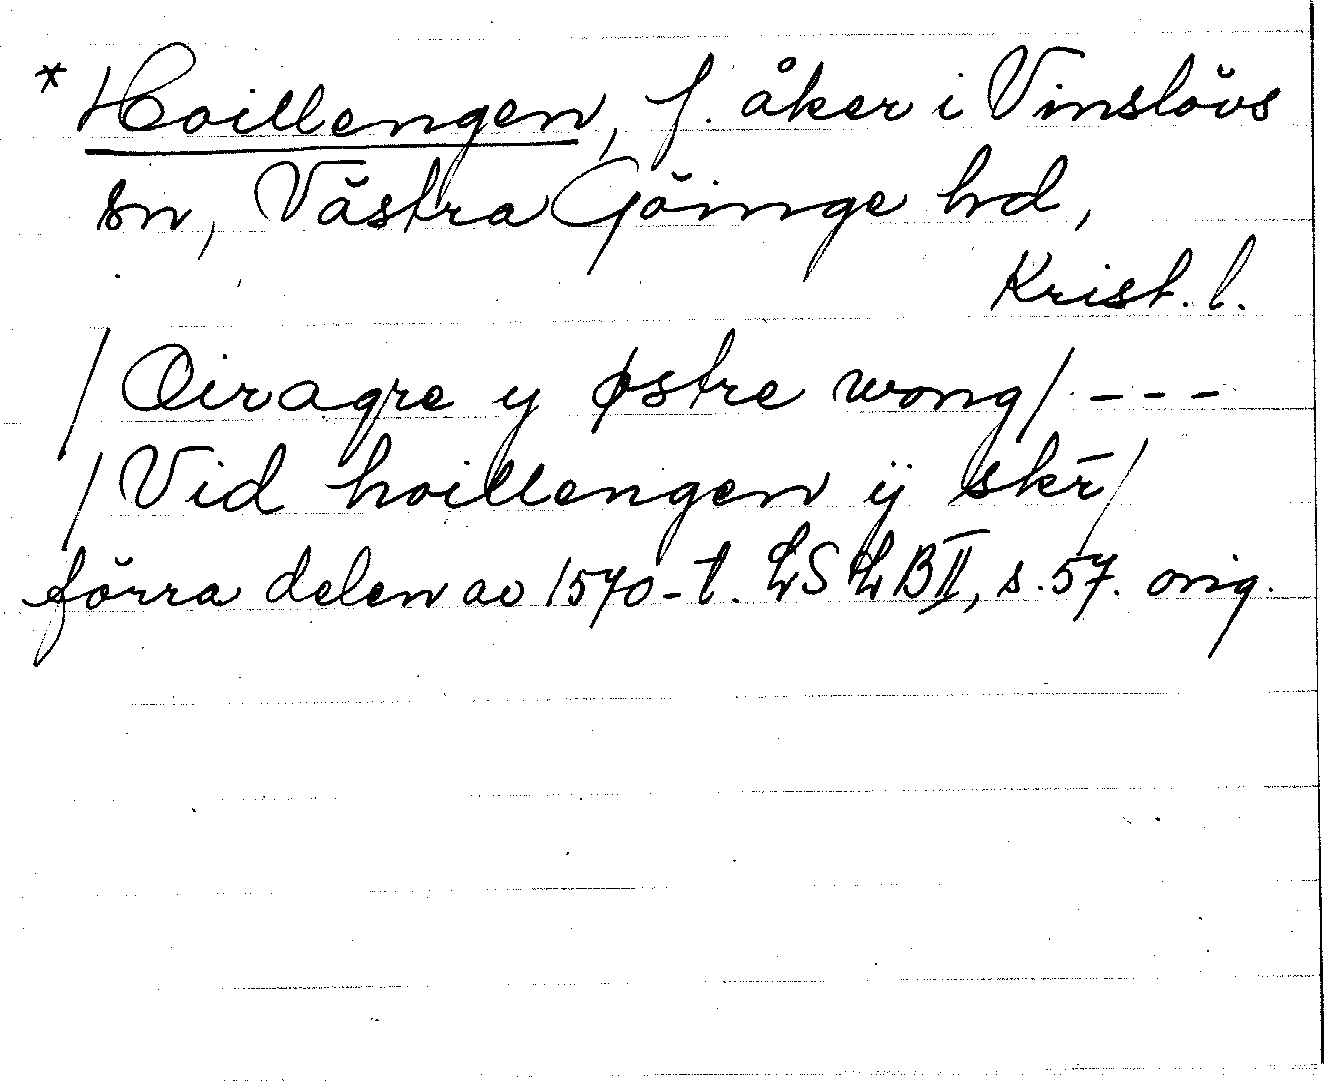 * Hoillengen, f. åker i Vinslövs
sn, Västra Göinge hd,
Krist. l.
/Oiragre y østre wong/ - - -
/Vid hoillengen ÿ skr̄/
förra delen av 1570-t. LSLB II, s. 57. orig.